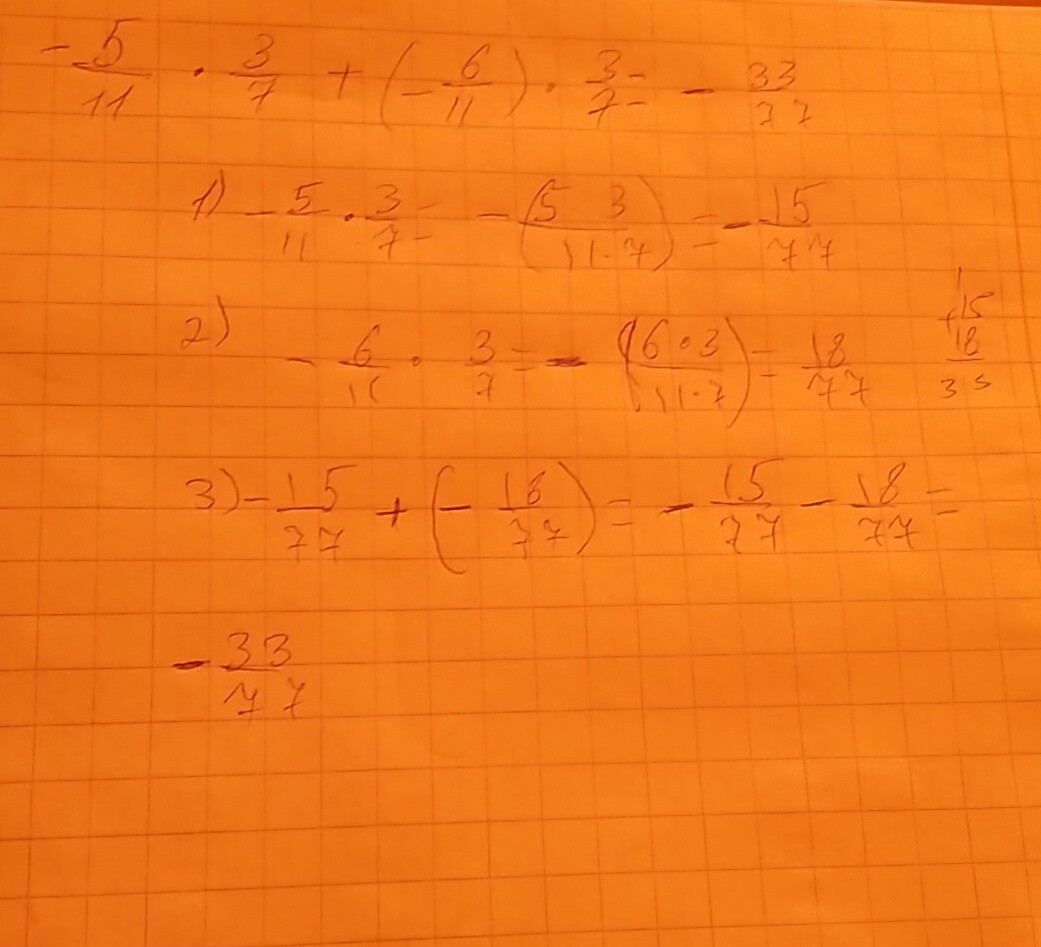 - 5/11 · 3/7 + (- 6/11) · 3/7 = - 33/77
1) - 5/11 · 3/7 = - (5 3 / 11·7) = - 15/77
2) - 6/11 · 3/7 = - (6·3 / 11·7) = 18/77
1
+15
18
33
3) - 15/77 + (- 18/77) = - 15/77 - 18/77 =
- 33/77